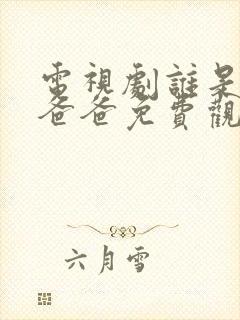 電視劇誰是
爸爸免費觀
六月雪